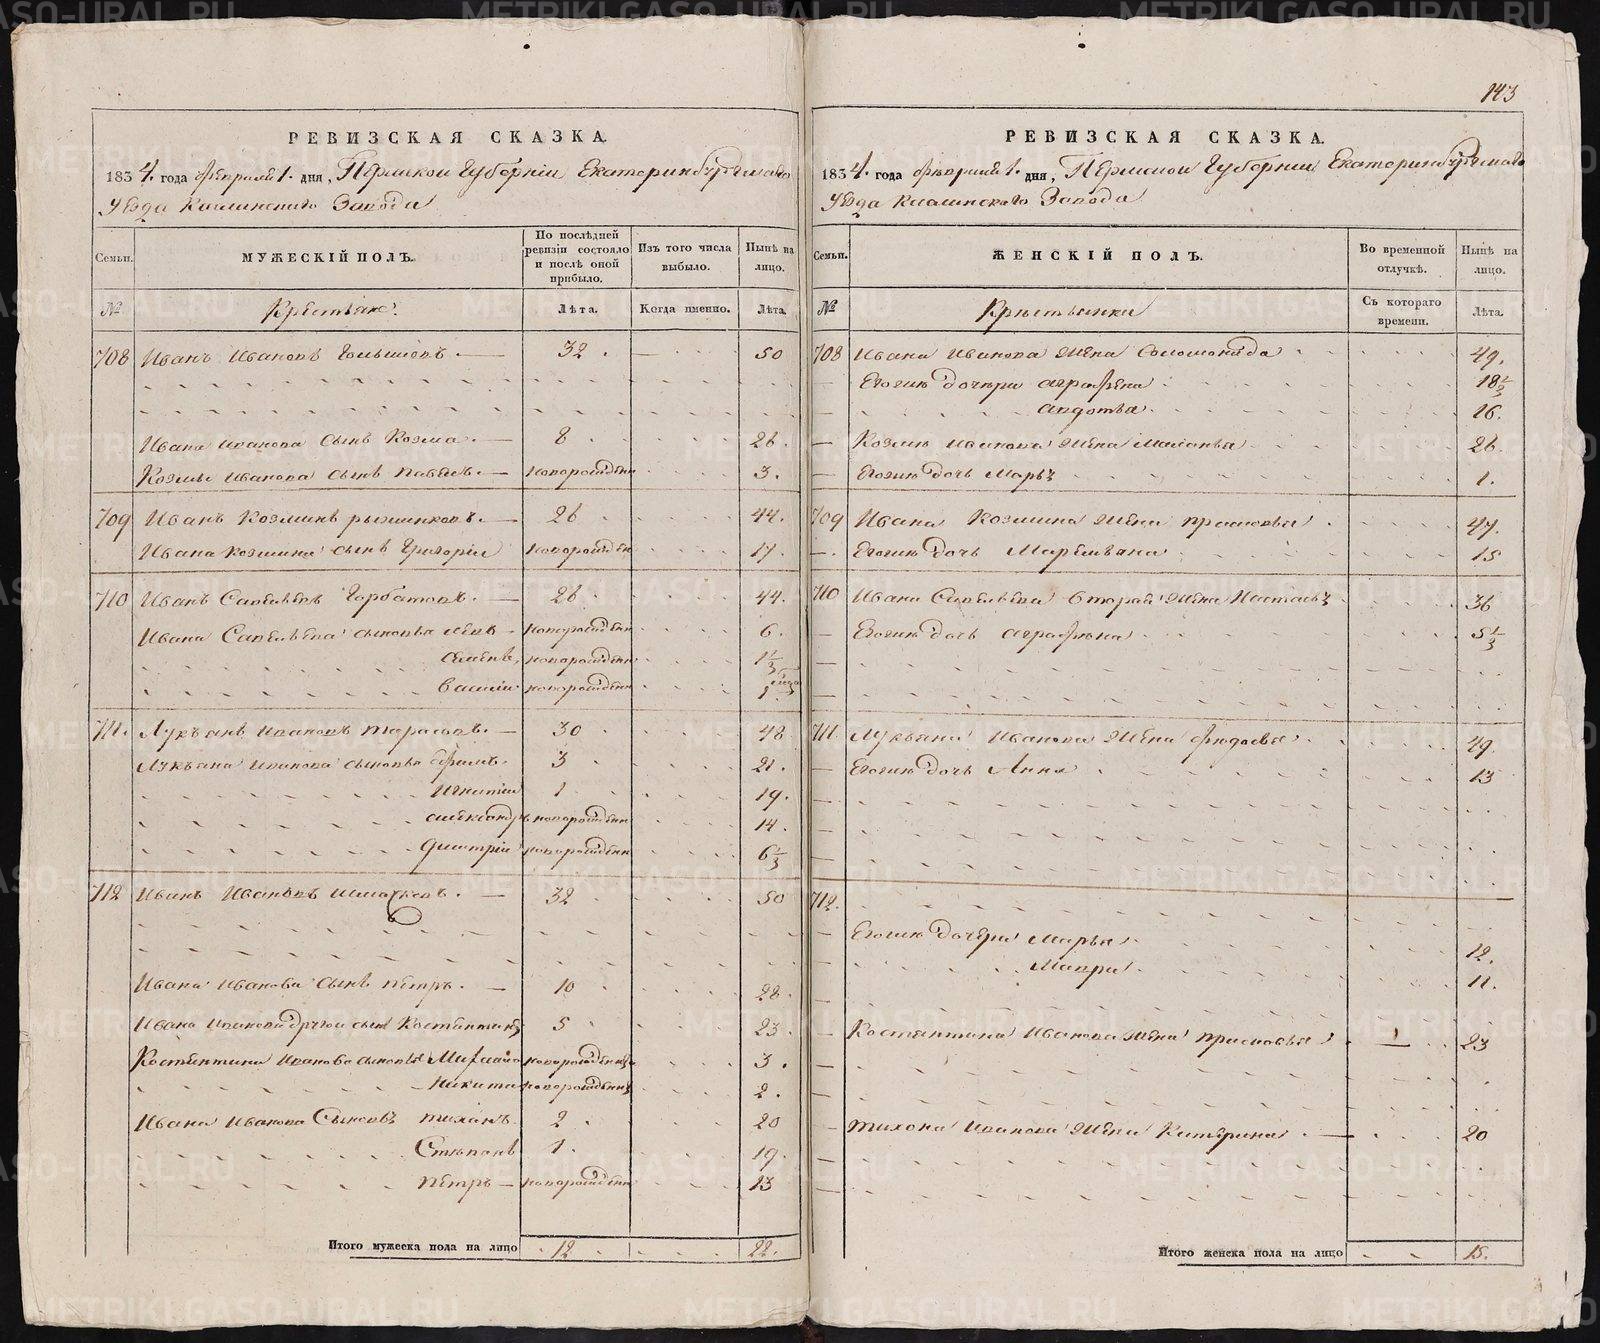 143
РЕВИЗСКАЯ СКАЗКА.
1834. года февраля 1. дня, Пермской Губернии Екатеринбургскаго
Уезда Каслинского Завода
Семьи. МУЖЕСКІЙ ПОЛЪ. По послѣдней ревизіи состояло и послѣ оной прибыло. Изъ того числа выбыло. Нынѣ на лицо.
№ Крестьяне. Лѣта. Когда именно. Лѣта.
708 Иванъ Ивановъ 32 50
Ивана Иванова сынъ Козма. 8 26.
Козмы Иванова сынъ Павелъ. новорожден 3.
709 Иванъ Козминъ 26 44.
Ивана Козмина сынъ Григорій новорожден 17.
710 Иванъ Савельевъ Горбатовъ. 26 44.
Ивана Савельева сыновья новорожден 6.
Семенъ, новорожден 1 1/3
Василій новорожден
711. Лукьянъ Ивановъ Тарасовъ. 30 48
Лукьяна Иванова сыновья Ефимъ. 3 21.
Игнатій 1 19.
Александръ новорожден 14.
Дмитрій новорожден 6 1/3
712 Иванъ Ивановъ 32 50
Ивана Иванова сынъ Петръ. 10 28.
Ивана Иванова другой сынъ Костентинъ 5 23.
Костентина Иванова сыновья Михайло новорожденъ 3.
Никита новорожденъ 2.
Ивана Иванова Сыновъ Тихонъ 2 20
Степанъ 1 19.
Петръ новорожден 13
Итого мужеска пола на лицо 12 22.
РЕВИЗСКАЯ СКАЗКА.
1834. года февраля 1. дня, Пермской Губернии Екатеринбургскаго
Уезда Каслинского Завода
Семьи. ЖЕНСКІЙ ПОЛЪ. Во временной отлучкѣ. Нынѣ на лицо.
№ Крестьянки Съ котораго времени. Лѣта.
708 Ивана Иванова жена Соломонида 49.
Егожъ дочери Аграфена 18 1/2
Авдотья 16.
Козмы Иванова жена Маланья 26
Егожъ дочь Марья 1.
709 Ивана Козмина жена Прасковья 47.
Егожъ дочь 15
710 Ивана Савельева вторая жена Настасья 36
Егожъ дочь Аграфена 5 1/3
711 Лукьяна Иванова жена Федосья 49.
Егожъ дочь Анна 13
712.
Егожъ дочери Марья 12.
Мавра 11.
Костянтина Иванова жена Прасковья 23
Тихона Иванова жена Катерина 20
Итого женска пола на лицо 15.
METRIKI.GASO-URAL.RU